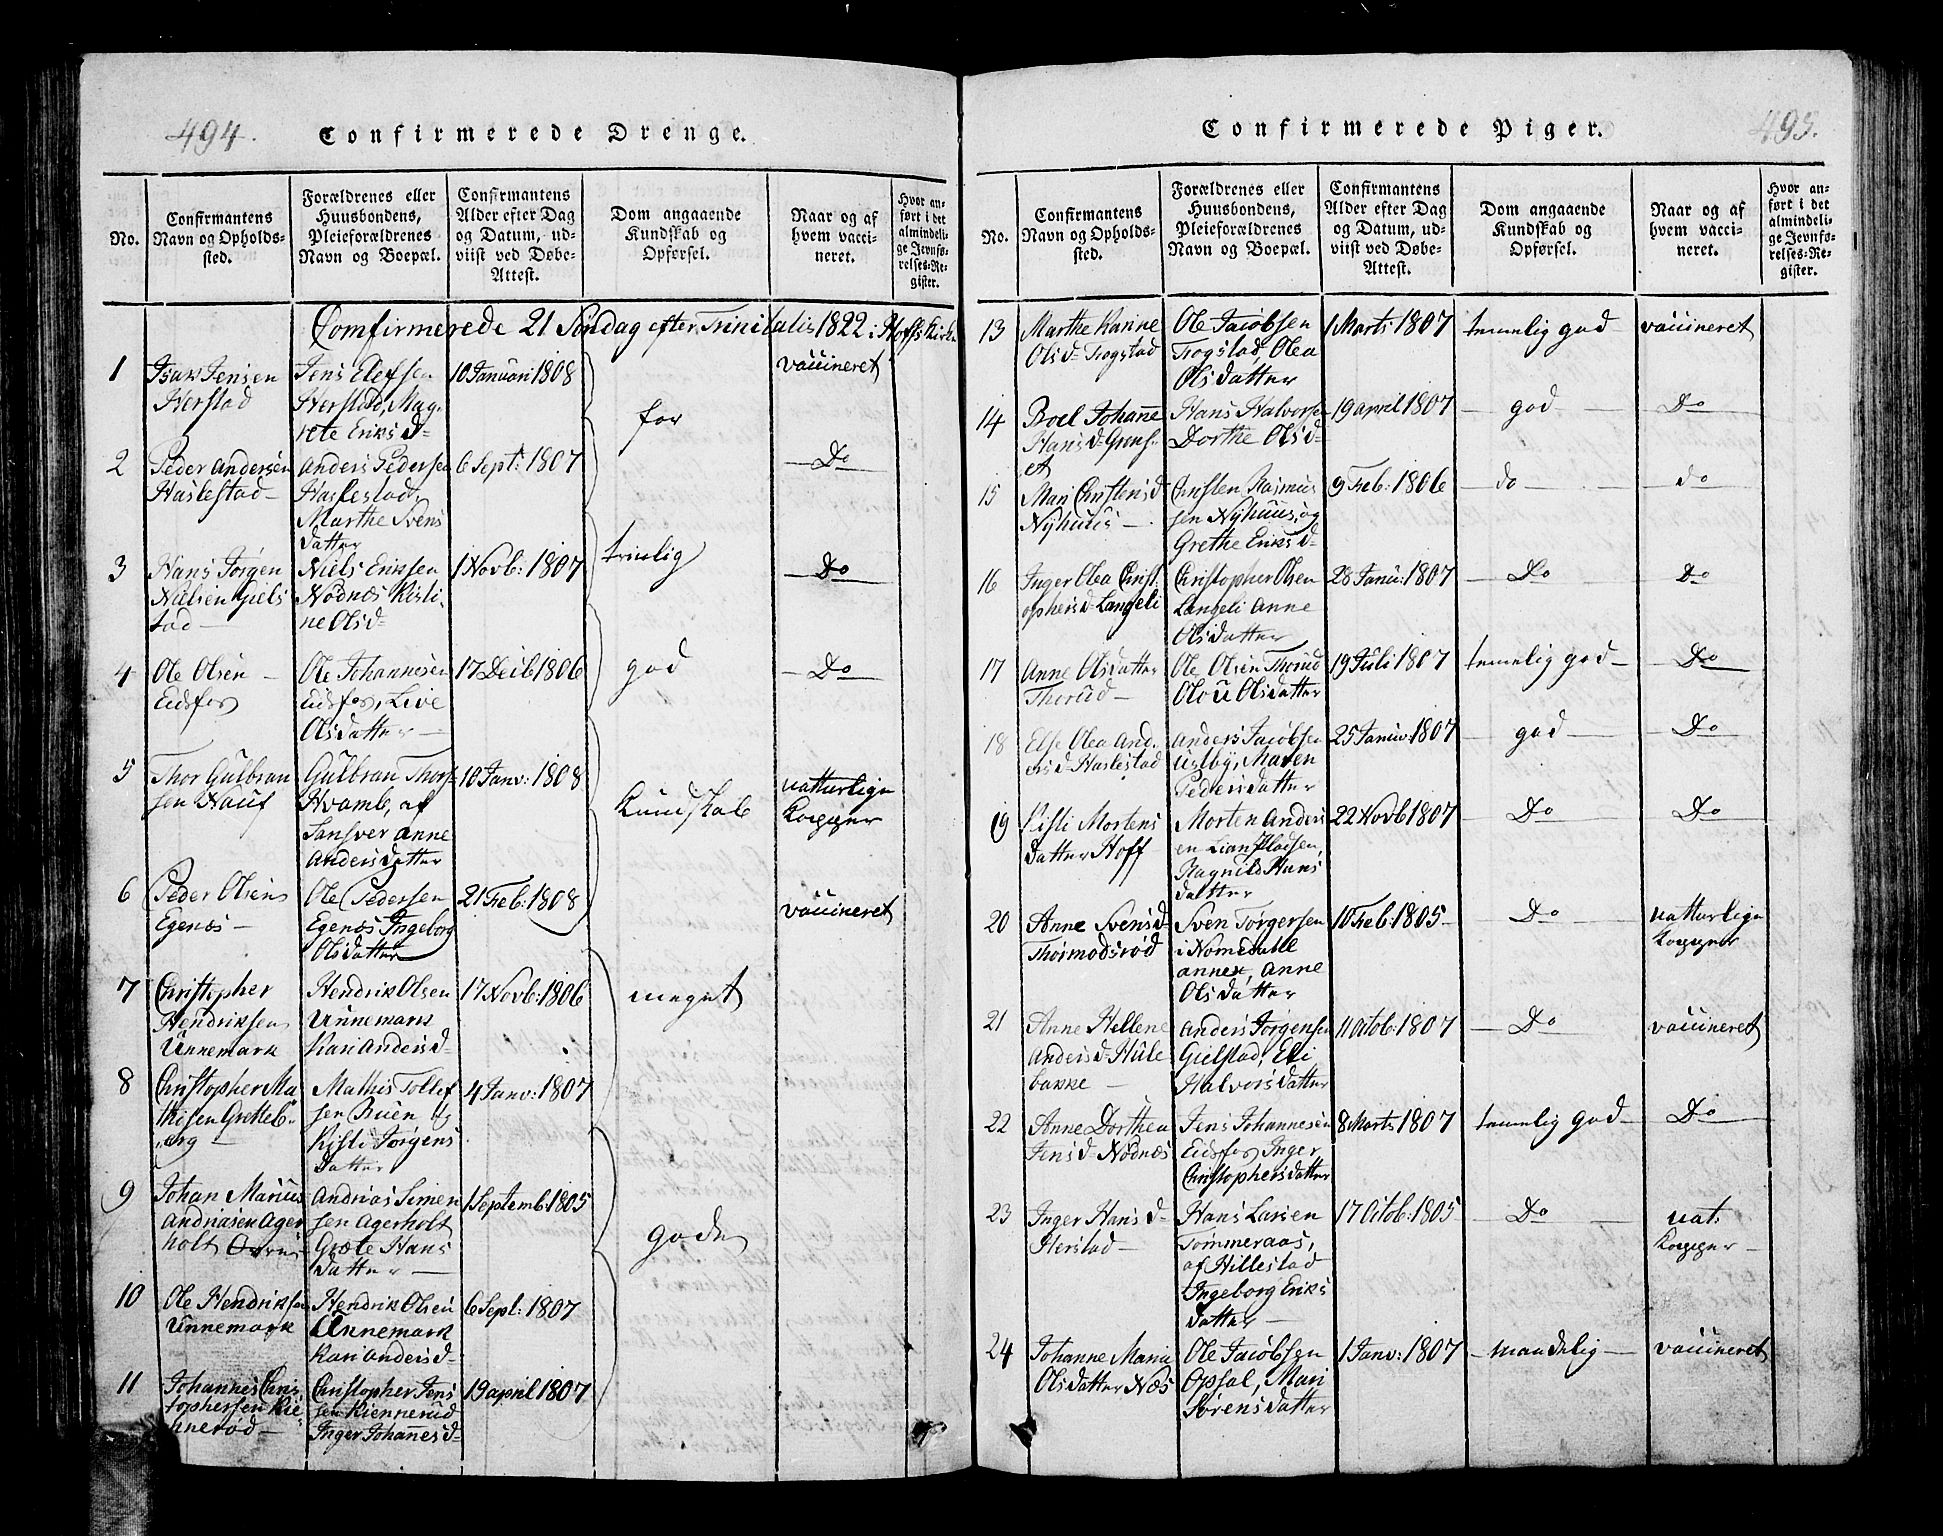 494.
Confirmerede Drenge.
No.
Confirmantens
Navn og Opholds-
sted.
Forældrenes eller
Huusbondens,
Pleieforældrenes
Navn og Boepæl.
Confirmantens
Alder efter Dag
og Datum, ud-
viist ved Døbe-
Attest.
Dom angaaende
Kundskab og
Opførsel.
Naar og af
hvem vacci-
neret.
Hvor an-
ført i det
almindeli-
ge Jevnfø-
relses-Re-
gister.
Comfirmerede 21 Søndag efter Trinitatis 1822 i Hoffs Kirke
1
Isak Jensen
Herstad
Jens Elefsen
Herstad, Mag-
rete Eriks d-
10 Januari 1808
vaccineret
for
2
Peder Andersen
Haslestad-
Anders Pedersen
Haslestad,
Marthe Svens
datter
6 Sept: 1807
Do
3
Hans Jørgen
Nilsen Giels
tad -
Niels Eriksen
Nødnæs Kisti-
ne Olsd-
1 Novb: 1807
trinlig
Do
4
Ole Olsen -
Eidsfos
Ole Johannesen
Eidsfos, Live
Olsdatter -
17 Decb 1806
god
Do
5
Thor Gulbran
sen Nauf
Gulbran Thors-
Hvamb, af
Sansver Anne
Andersdatter
10 Janv: 1808
Kundskab
natturlige
Kopper
6
Peder Olsens
Egenæs -
Ole Pedersen
Egenæs Ingeborg
Olsdatter
21 Feb: 1808
vaccineret
7
Christopher
Hendriksen
Unnemark
Hendrik Olsen
Unnemark
Kari Anders d-
17 Novb: 1806
meget
8
Christopher Ma
thisen Gretteb-
erg -
Mathis Tollef
sen Bruen og
Kisti Jørgens
datter
4 Janv: 1807
9
Johan Marius
Andriasen Ager
holt
Andrias Simen
sen Agerholt
Græte Hans
datter -
1 Septemb: 1805
gode
10
Ole Hendriksen
Unnemark
Hendrik Olsen
Unnemark
Kari Anders d-
6 Sept: 1807
11
Johannes Chris
tophersen Kie-
nnerød -
Christopher Jens
sen Kiennerud
Inger Johanes d-
19 april 1807
495.
Confirmerede Piger.
No.
Confirmantens
Navn og Opholds-
sted.
Forældrenes eller
Huusbondens,
Pleieforældrenes
Navn og Boepæl.
Confirmantens
Alder efter Dag
og Datum, ud-
viist ved Døbe-
Attest.
Dom angaaende
Kundskab og
Opførsel.
Naar og af
hvem vacci-
neret.
Hvor an-
ført i det
almindeli-
ge Jevnfø-
relses-Re-
gister.
13
Marthe Karine
Olsd- Trogstad
Ole Jacobsen
Trogstad, Olea
Olsdatter
1 Marts 1807
temelig god
vaccineret
14
Boel Johanne
Hans d- Grens-
et
Hans Halvorsen
Dorthe Olsd-
19 april 1807
god
Do
15
Mari Christens d
Nyhuus -
Christen Rasmus
sen Nyhuus, og
Grethe Eriksd-
9 Feb: 1806
do
do
16
Inger Olea Christ
ophersd- Langeli
Christopher Olsen
Langeli Anne
Olsdatter
28 Janu: 1807
Do
Do
17
Anne Olsdatter
Thorud -
Ole Olsen Thorud
Olou Olsdatter
19 Juli 1807
temelig god
Do
18
Else Olea And-
ersd- Haslestad
Anders Jacobsen
Uslby, Maren
Pedersdatter
25 Januv: 1807
god
Do
19
Kisti Mortens
datter Hoff
Morten Anders
en Lian Pladsen,
Ragnild Hans
datter
22 Novb 1807
Do
Do
20
Anne Svens d-
Thormodsrød
Sven Torgersen
i Nomedalle
annex, Anne
Olsdatter
10 Feb: 1805-
Do
natturlige
Kopper
21
Anne Hellene
Anders d- Hule
bakke -
Anders Jørgensen
Gielstad, Eli
Halvorsdatter
11 Octob: 1807
Do
vaccineret
22
Anne Dorthea
Jensd- Nødnæs
Jens Johannesen
Eidsfos Inger
Christophersdatter
8 Marts 1807
temelig god
Do
23
Inger Hans d-
Herstad -
Hans Larsen
Tømmeraas,
af Hillestad
Ingeborg Eriks
datter -
17 Octob: 1805-
Do
nat:
Kopper -
24
Johanne Maria
Olsdatter Næs
Ole Jacobsen
Opsal, Mari
Sørensdatter
1 Janv: 1807
maadelig
vaccineret